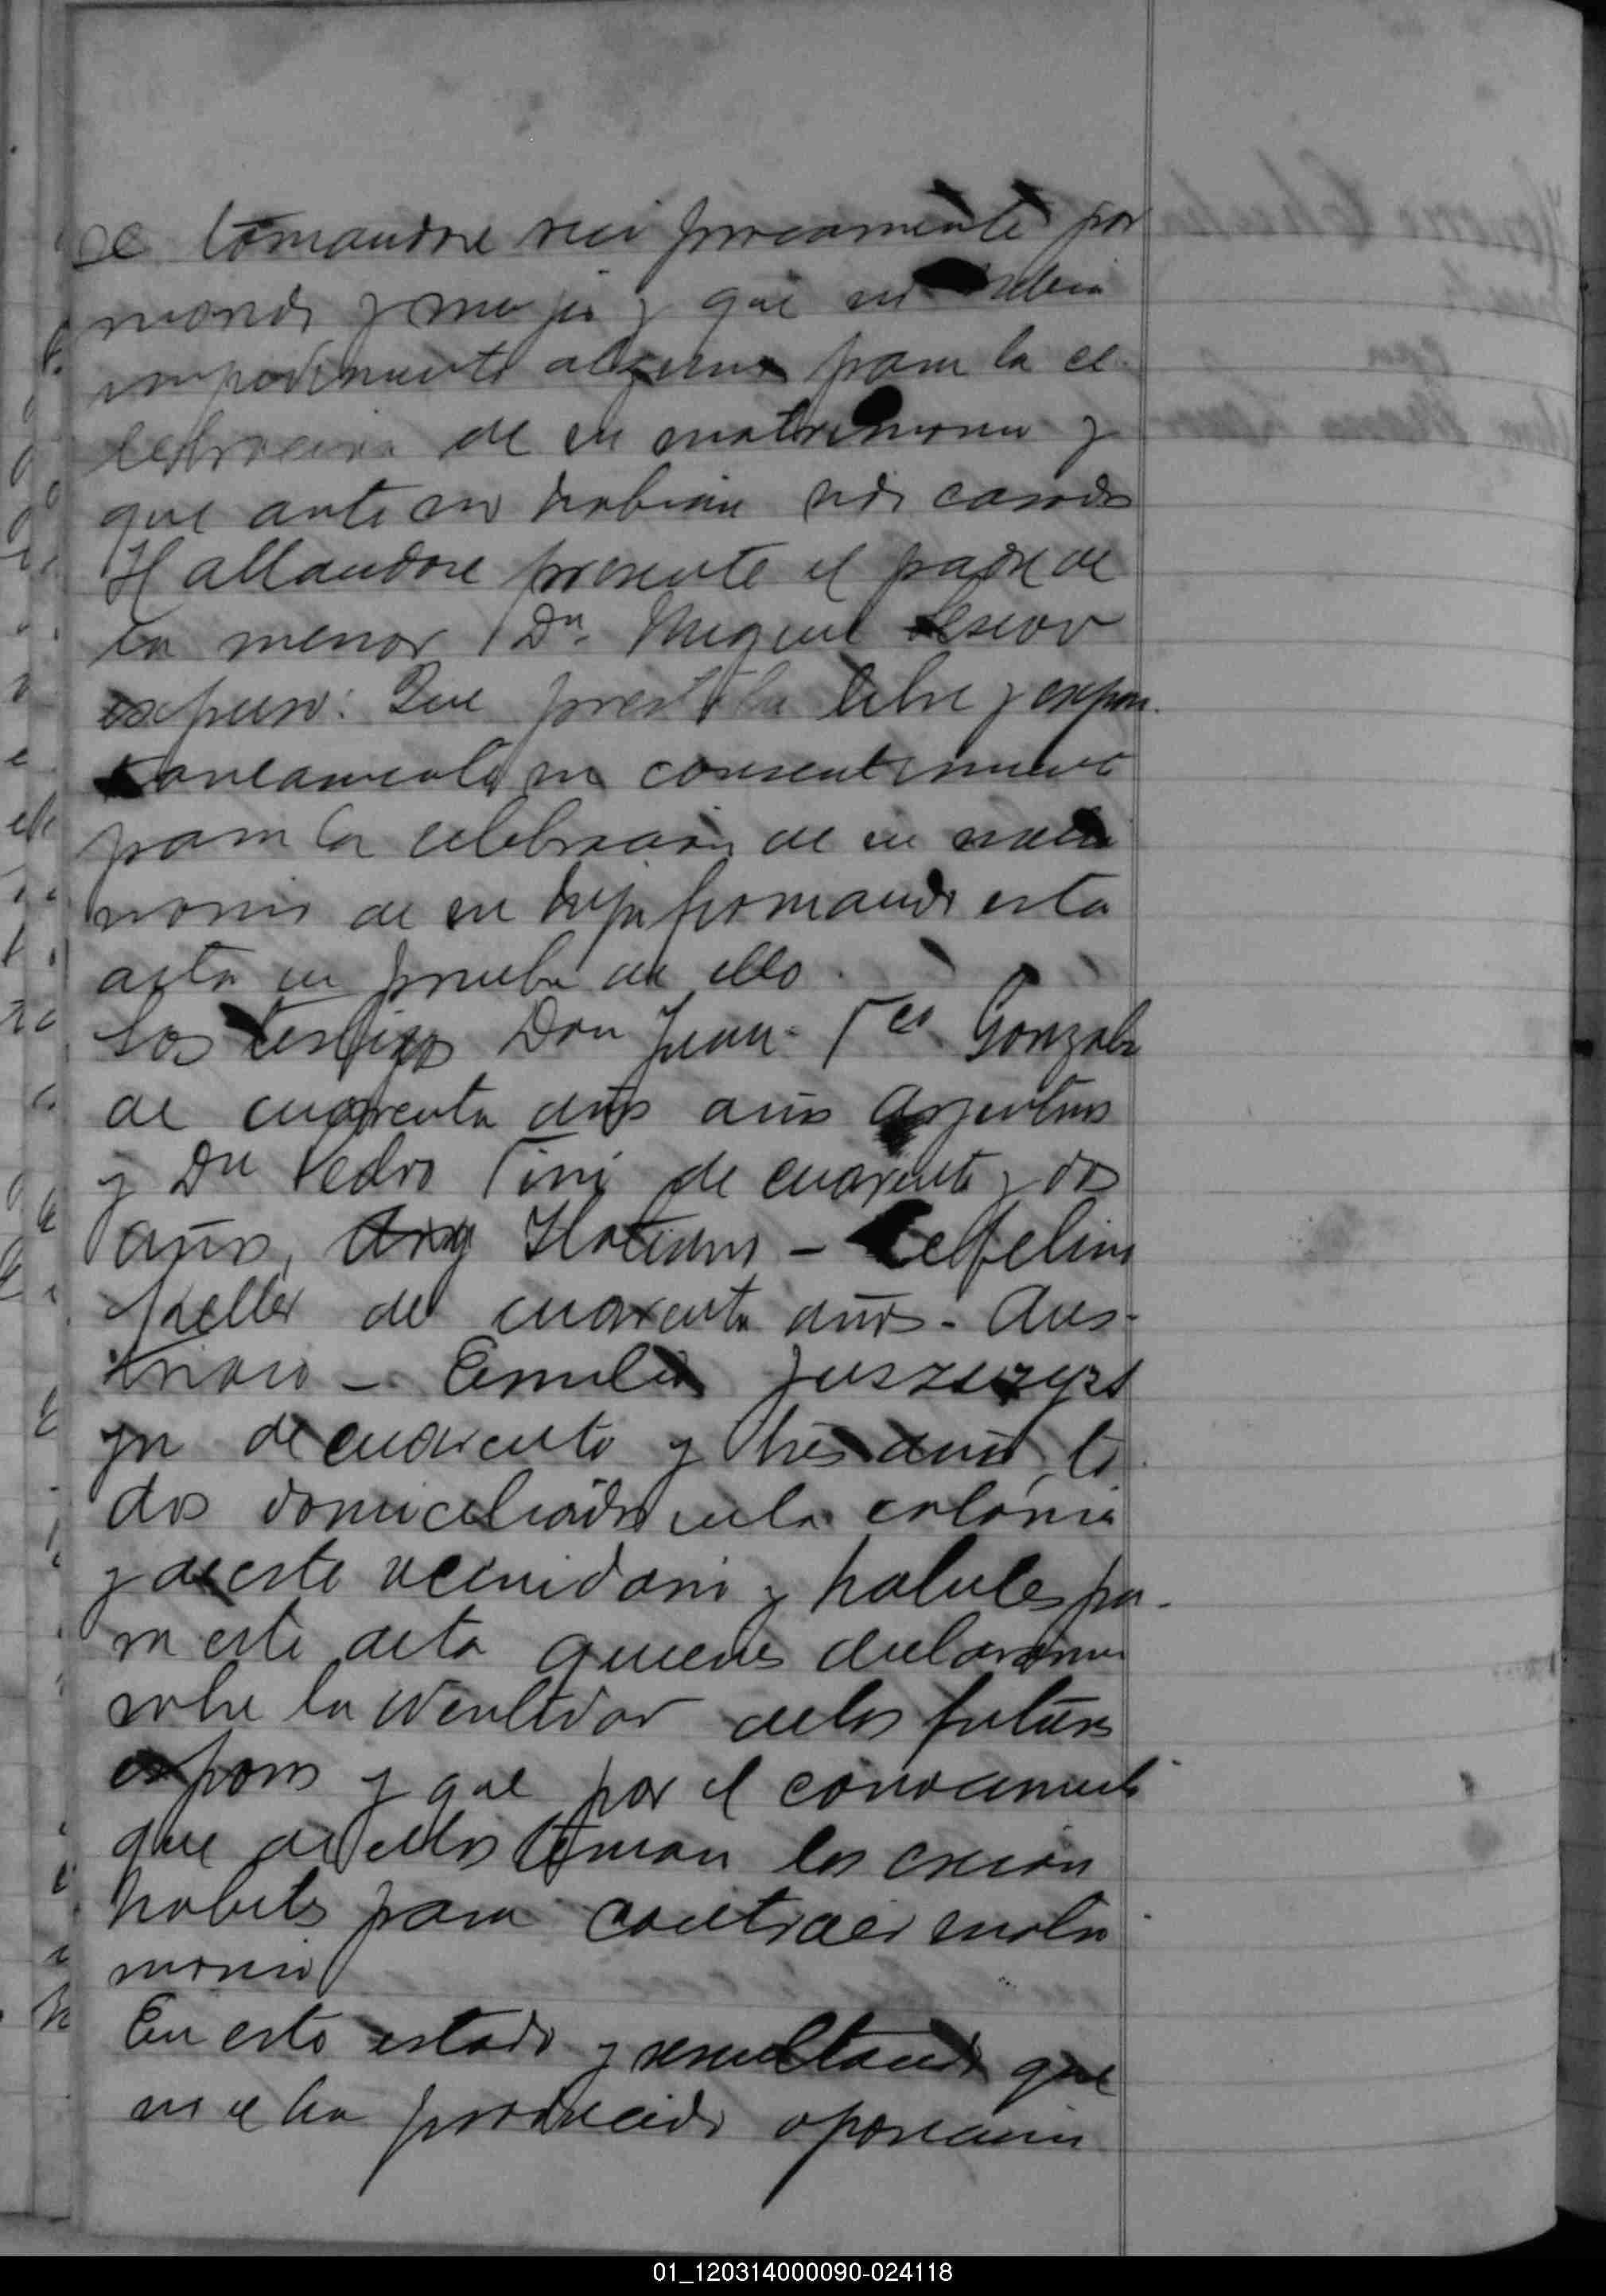 se tomandose reciprocamente por
marido y mujer y que no habia
impedimento alguno para la ce-
lebracion de su matrimonio y
que antes no habian sido casados
Hallandose presente el padre de
la menor Dn. Miguel
expuso: Que presta libre y espon-
taneamente su consentimiento
para la celebracion de su matri
monio de su hija firmando esta
acta en prueba de ello.
Los testigos Don Juan Gonzalez
de cuarenta años años Argentino
y Dn Pedro Tini de cuarenta y dos
años, Arg Italiano -
Keller de cuarenta años - Aus-
triaco - Emilio
yn de cuarenta y tres años, to
dos domiciliados en la colonia
y de este vecindario y habiles pa-
ra este acto quienes declararon
sobre la identidad de los futuros
esposos y que por el conocimiento
que de ellos tenian los creian
habiles para contraer matri
monio
En este estado y resultando que
no se ha producido oposicion
01_120314000090-024118